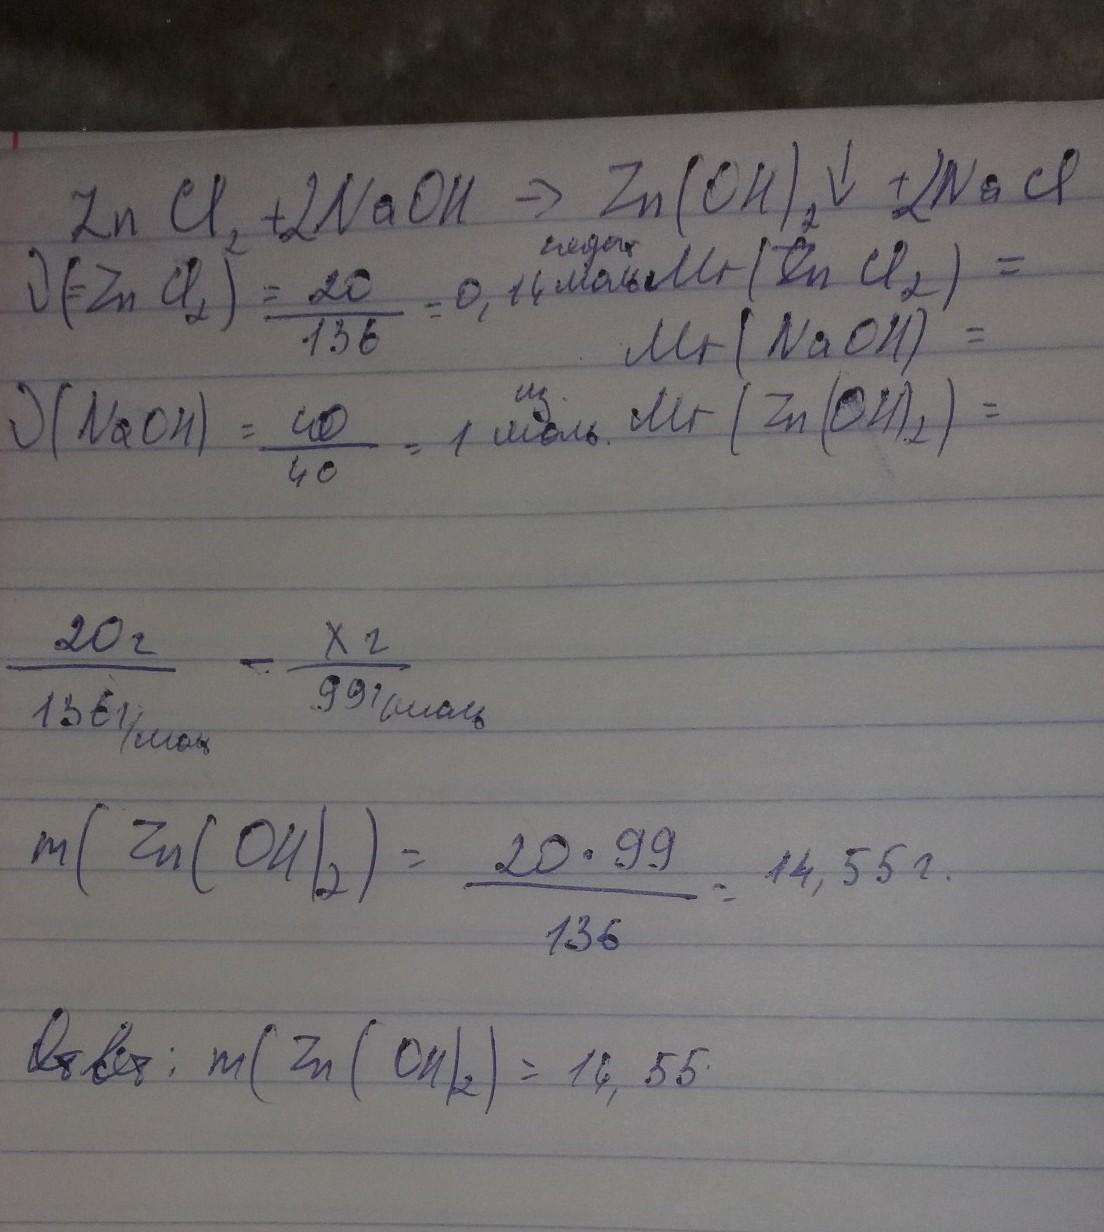 ZnCl₂ + 2NaOH → Zn(OH)₂↓ + 2NaCl
ν(ZnCl₂) = 20/136 = 0,14 моль Mr(ZnCl₂) =
Mr(NaOH) =
ν(NaOH) = 40/40 = 1 моль. Mr(Zn(OH)₂) =
20г/136г/моль - Xг/99г/моль
m(Zn(OH)₂) = 20·99/136 = 14,55г.
Ответ: m(Zn(OH)₂) = 14,55